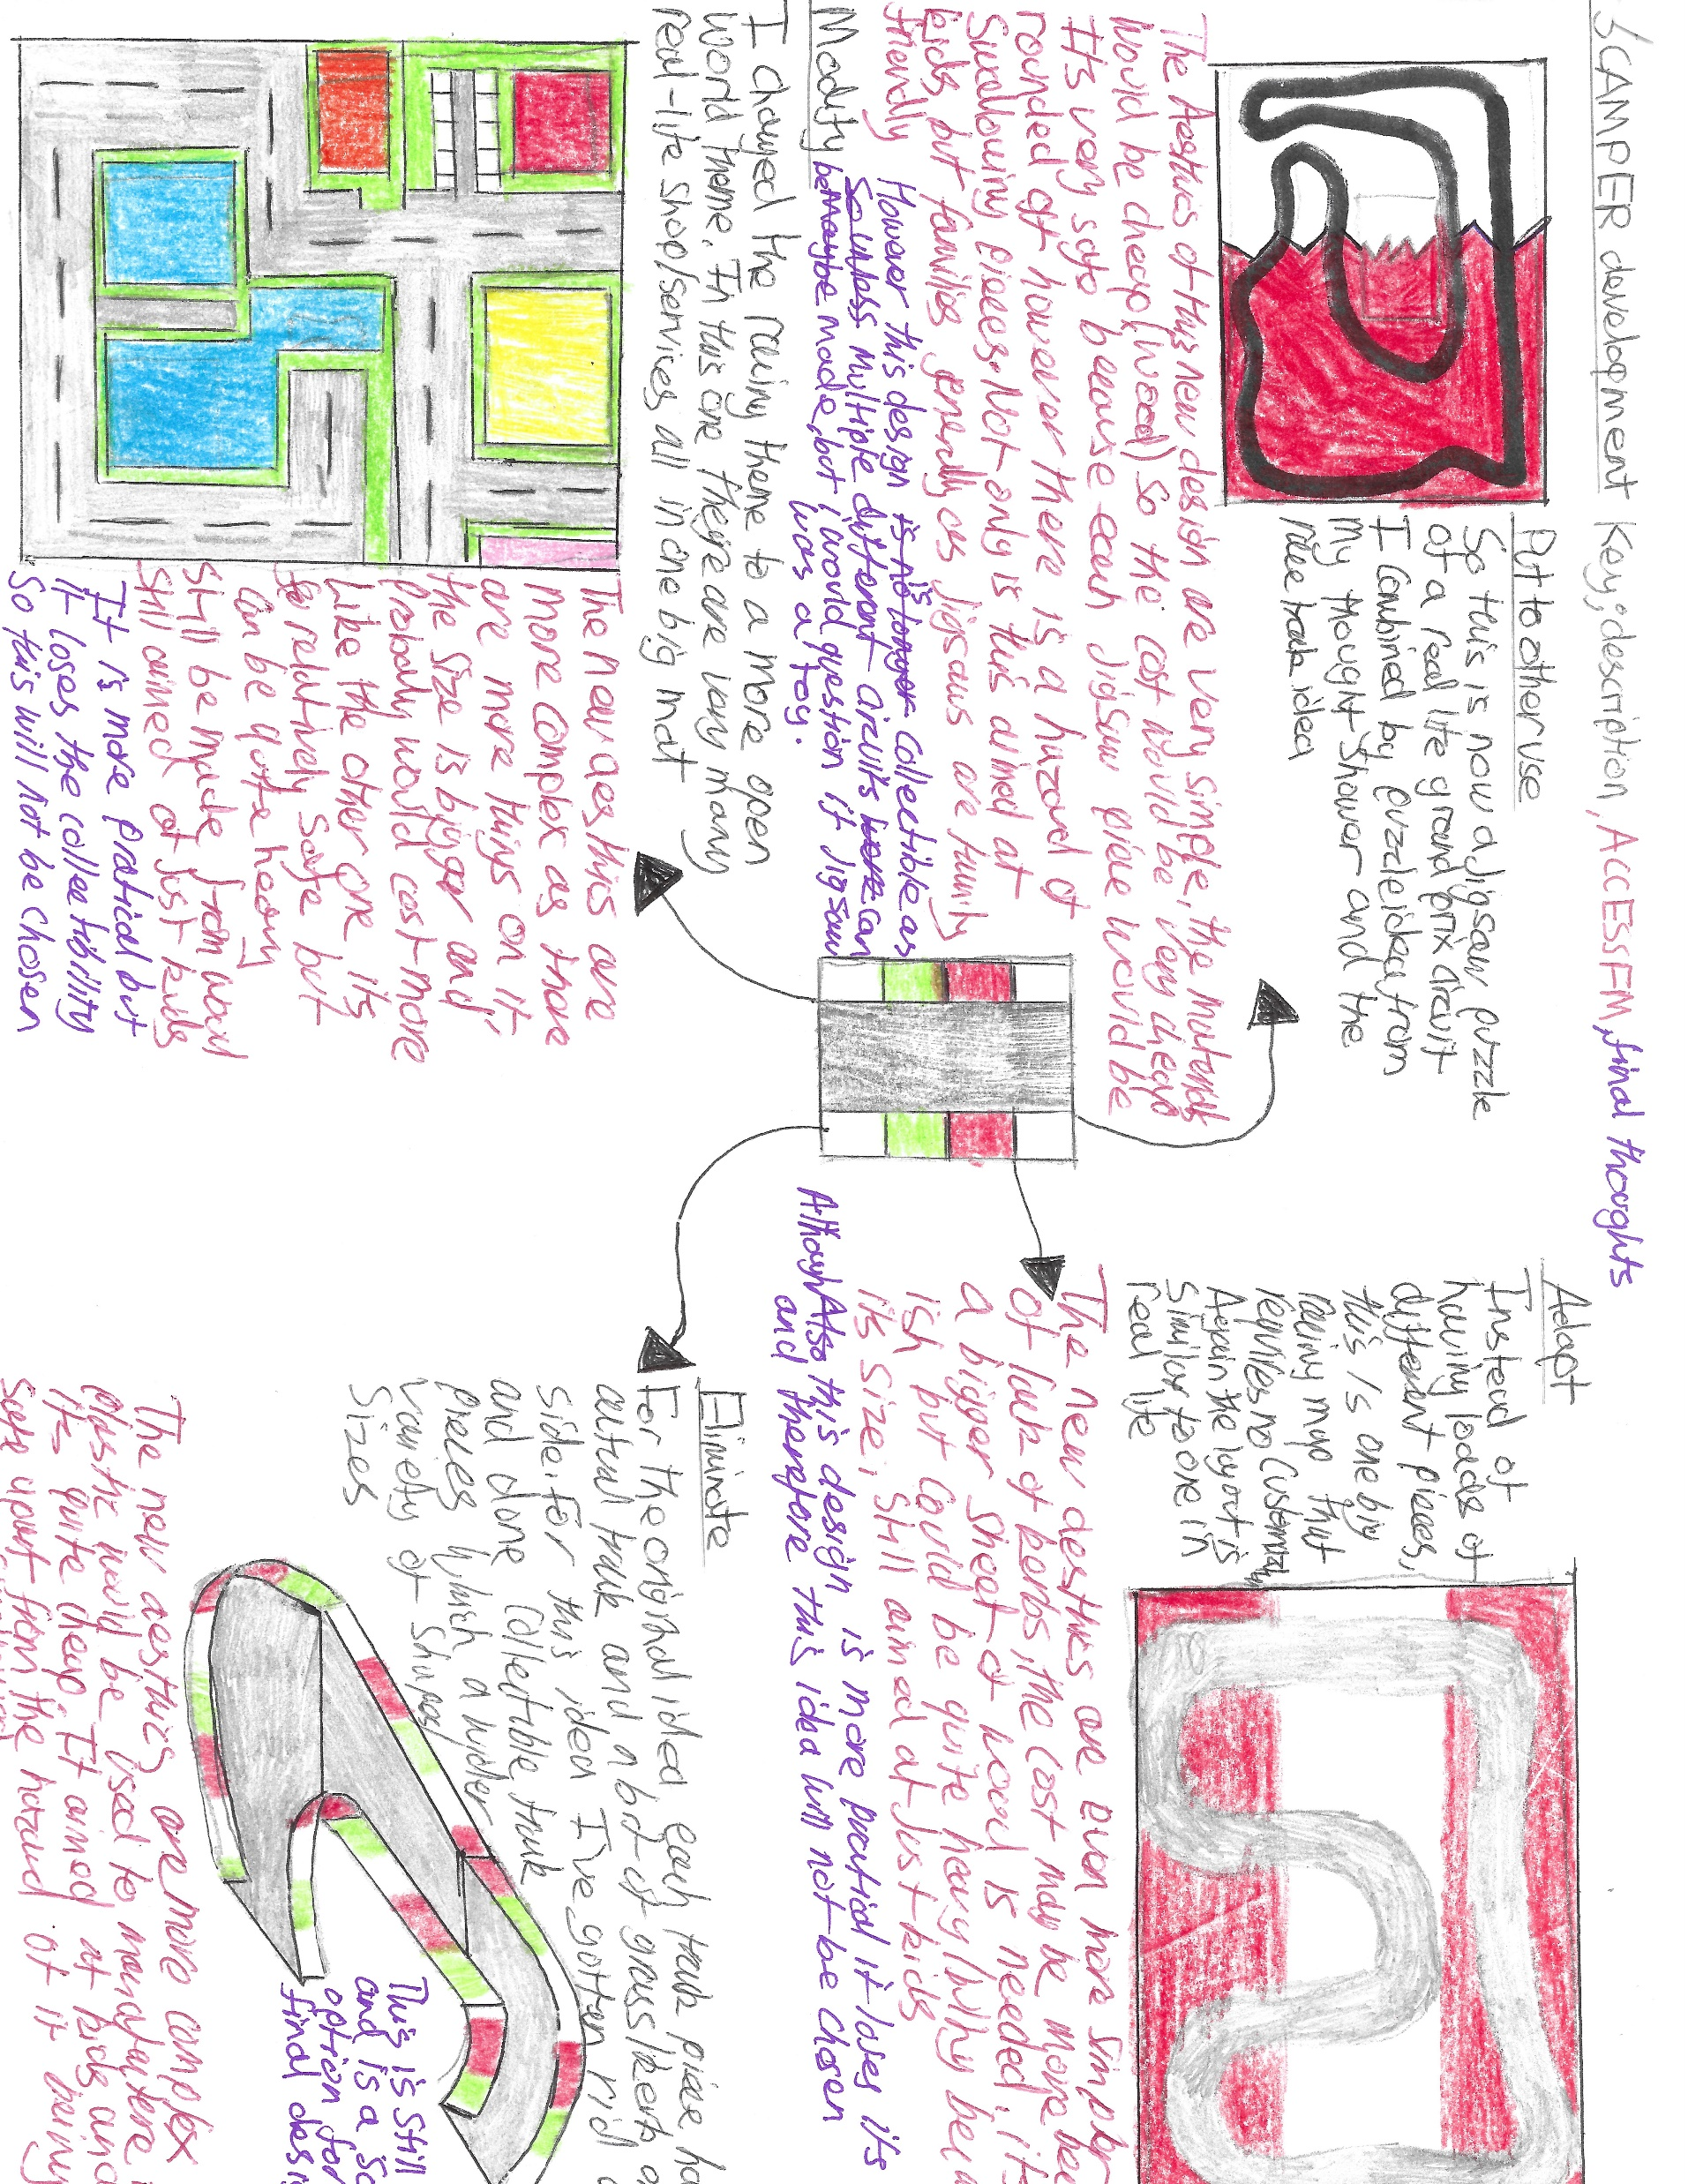 SCAMPER development Key; description, ACCESSFM, final thoughts
Put to other use
So this is now a jigsaw puzzle
of a real life grand prix circuit
I combined by puzzle idea from
my thought shower and the
race track idea
The Aesthics of this new design are very simple, the materials
would be cheap (wood) so the cost would be very cheap
Its very safe because each jigsaw piece would be
rounded of however there is a hazard of
swallowing pieces. Not only is this aimed at
kids but families generally as jigsaws are family
friendly
However this design is no longer collectible as
So unless multiple different circuits were can
be maybe made, but I would question if jigsaw
was a toy.
Modify
I changed the racing theme to a more open
world theme. In this one theyre are very many
real-life shop/services all in one big mat
The new aesthics are
more complex as there
are more things on it,
the size is bigger and
probably would cost more
Like the other one its
relatively safe but
can be quite heavy
Still be made from wood
Still aimed at just kids
It is more pratical but
it loses the collectibility
So this will not be chosen
Adapt
Instead of
having loads of
different pieces,
this is one big
racing map that
requires no customizing
Again the layout is
similar to one in
real life
The new aesthics are even more simpler
of lack of kerbs, the cost may be more
a bigger sheet of wood is needed, its
ish but could be quite heavy/bulky
its size, Still aimed at just kids
Although Also this design is more practical it loses its
and therefore this idea will not be chosen
Eliminate
For the original idea, each track piece
actual track and a bit of grass/kerb
side. For this idea I've gotten rid
and done collectible track
pieces which a wider
variety of shapes/
sizes
The new aesthics are more complex
plastic would be used to manufacture
its quite cheap. It aimed at kids and
safe apart from the hazard of it being
This is still
and is a
option for
final